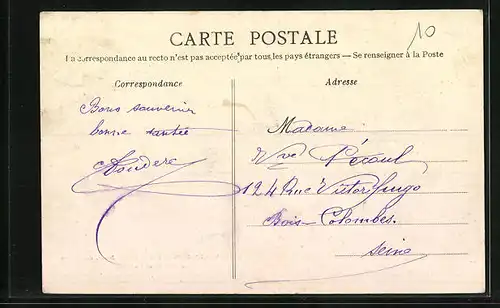 10
CARTE POSTALE
La correspondance au recto n'est pas acceptée par tous les pays étrangers — Se renseigner à la Poste
Correspondance
Bons souvenir
bonne santée
Adresse
Madame
Vve Pécoul
124 Rue Victor Hugo
Bois-Colombes.
Seine